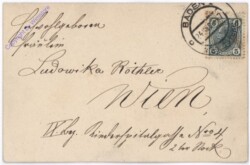 Hochwohlgeboren
Fräulein
Ludowika Röthler
Wien
IX bez. Kinderspitalgasse No 4
2ter Stock
BADEN
5